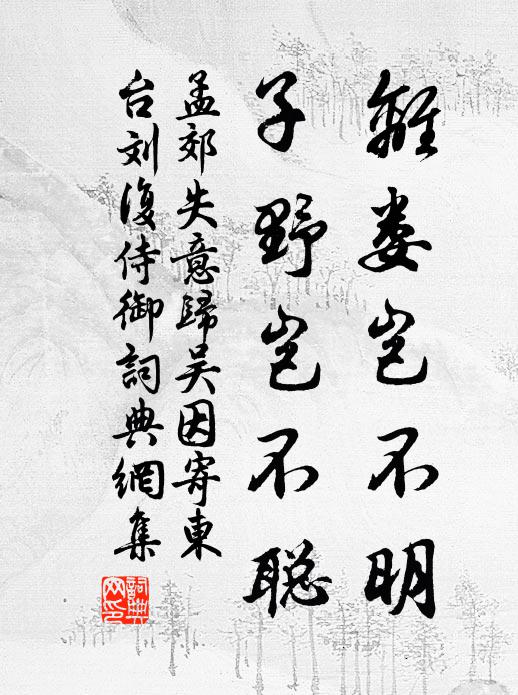 離娄岂不明
子野岂不聪
孟郊失意歸吴因寄東
台刘復侍御詞典網集
詞典
网印